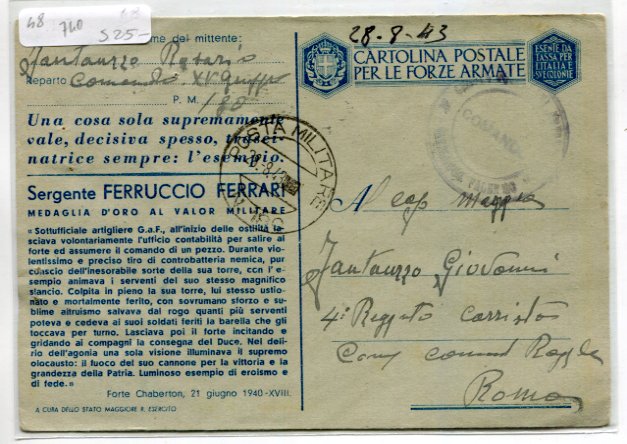 48
740
$25-
28-8-43
me del mittente:
Fantauzzo Rosario
Reparto Comando XV Gruppo
P. M. 180
CARTOLINA POSTALE
PER LE FORZE ARMATE
ESENTE DA
TASSA PER
L'ITALIA
E SUE COLONIE
Una cosa sola supremamente
vale, decisiva spesso, trasci-
natrice sempre: l'esempio.
POSTA MILITARE
COMANDO
Sergente FERRUCCIO FERRARI
MEDAGLIA D'ORO AL VALOR MILITARE
« Sottufficiale artigliere G.a.F., all'inizio delle ostilità la-
sciava volontariamente l'ufficio contabilità per salire al
forte ed assumere il comando di un pezzo. Durante vio-
lentissimo e preciso tiro di controbatteria nemica, pur
conscio dell'inesorabile sorte della sua torre, con l'e-
sempio animava i serventi del suo stesso magnifico
slancio. Colpita in pieno la sua torre, lui stesso ustio-
nato e mortalmente ferito, con sovrumano sforzo e su-
blime altruismo salvava dal rogo quanti più serventi
poteva e cedeva ai suoi soldati feriti la barella che gli
toccava per turno. Lasciava poi il forte incitando e
gridando ai compagni la consegna del Duce. Nel deli-
rio dell'agonia una sola visione illuminava il supremo
olocausto: il fuoco del suo cannone per la vittoria e la
grandezza della Patria. Luminoso esempio di eroismo e
di fede.»
Forte Chaberton, 21 giugno 1940-XVIII.
A CURA DELLO STATO MAGGIORE R. ESERCITO
Al cap. magg.
Fantauzzo Giovanni
4° Reggto carristi
Comp comand
Roma